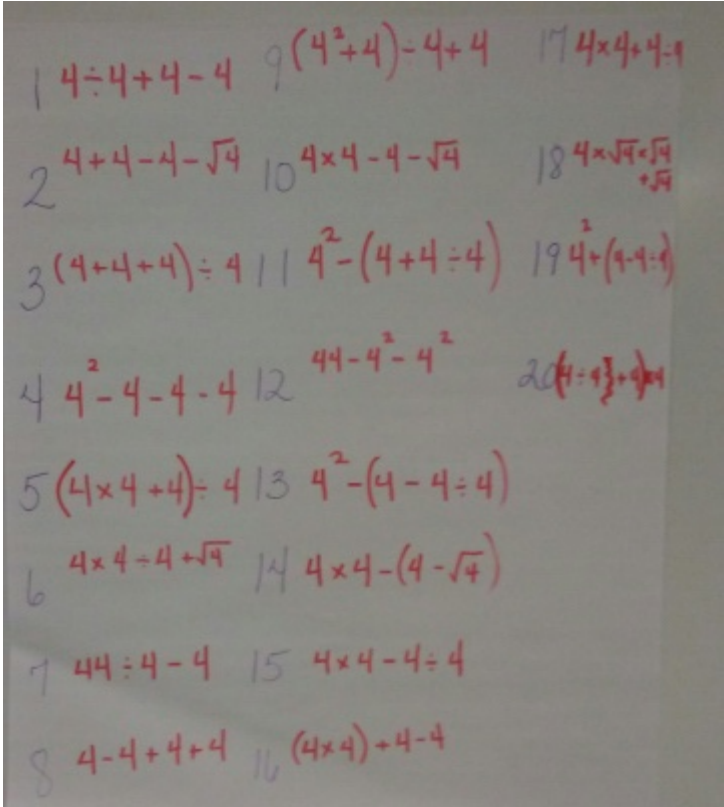 1 4÷4+4-4
2 4+4-4-√4
3 (4+4+4)÷4
4 4²-4-4-4
5 (4×4+4)÷4
6 4×4÷4+√4
7 44÷4-4
8 4-4+4+4
9 (4²+4)÷4+4
10 4×4-4-√4
11 4²-(4+4÷4)
12 44-4²-4²
13 4²-(4-4÷4)
14 4×4-(4-√4)
15 4×4-4÷4
16 (4×4)+4-4
17 4×4+4÷4
18 4×√4×√4
+√4
19 4²+(4-4÷4)
20 (4÷4}+4)×4